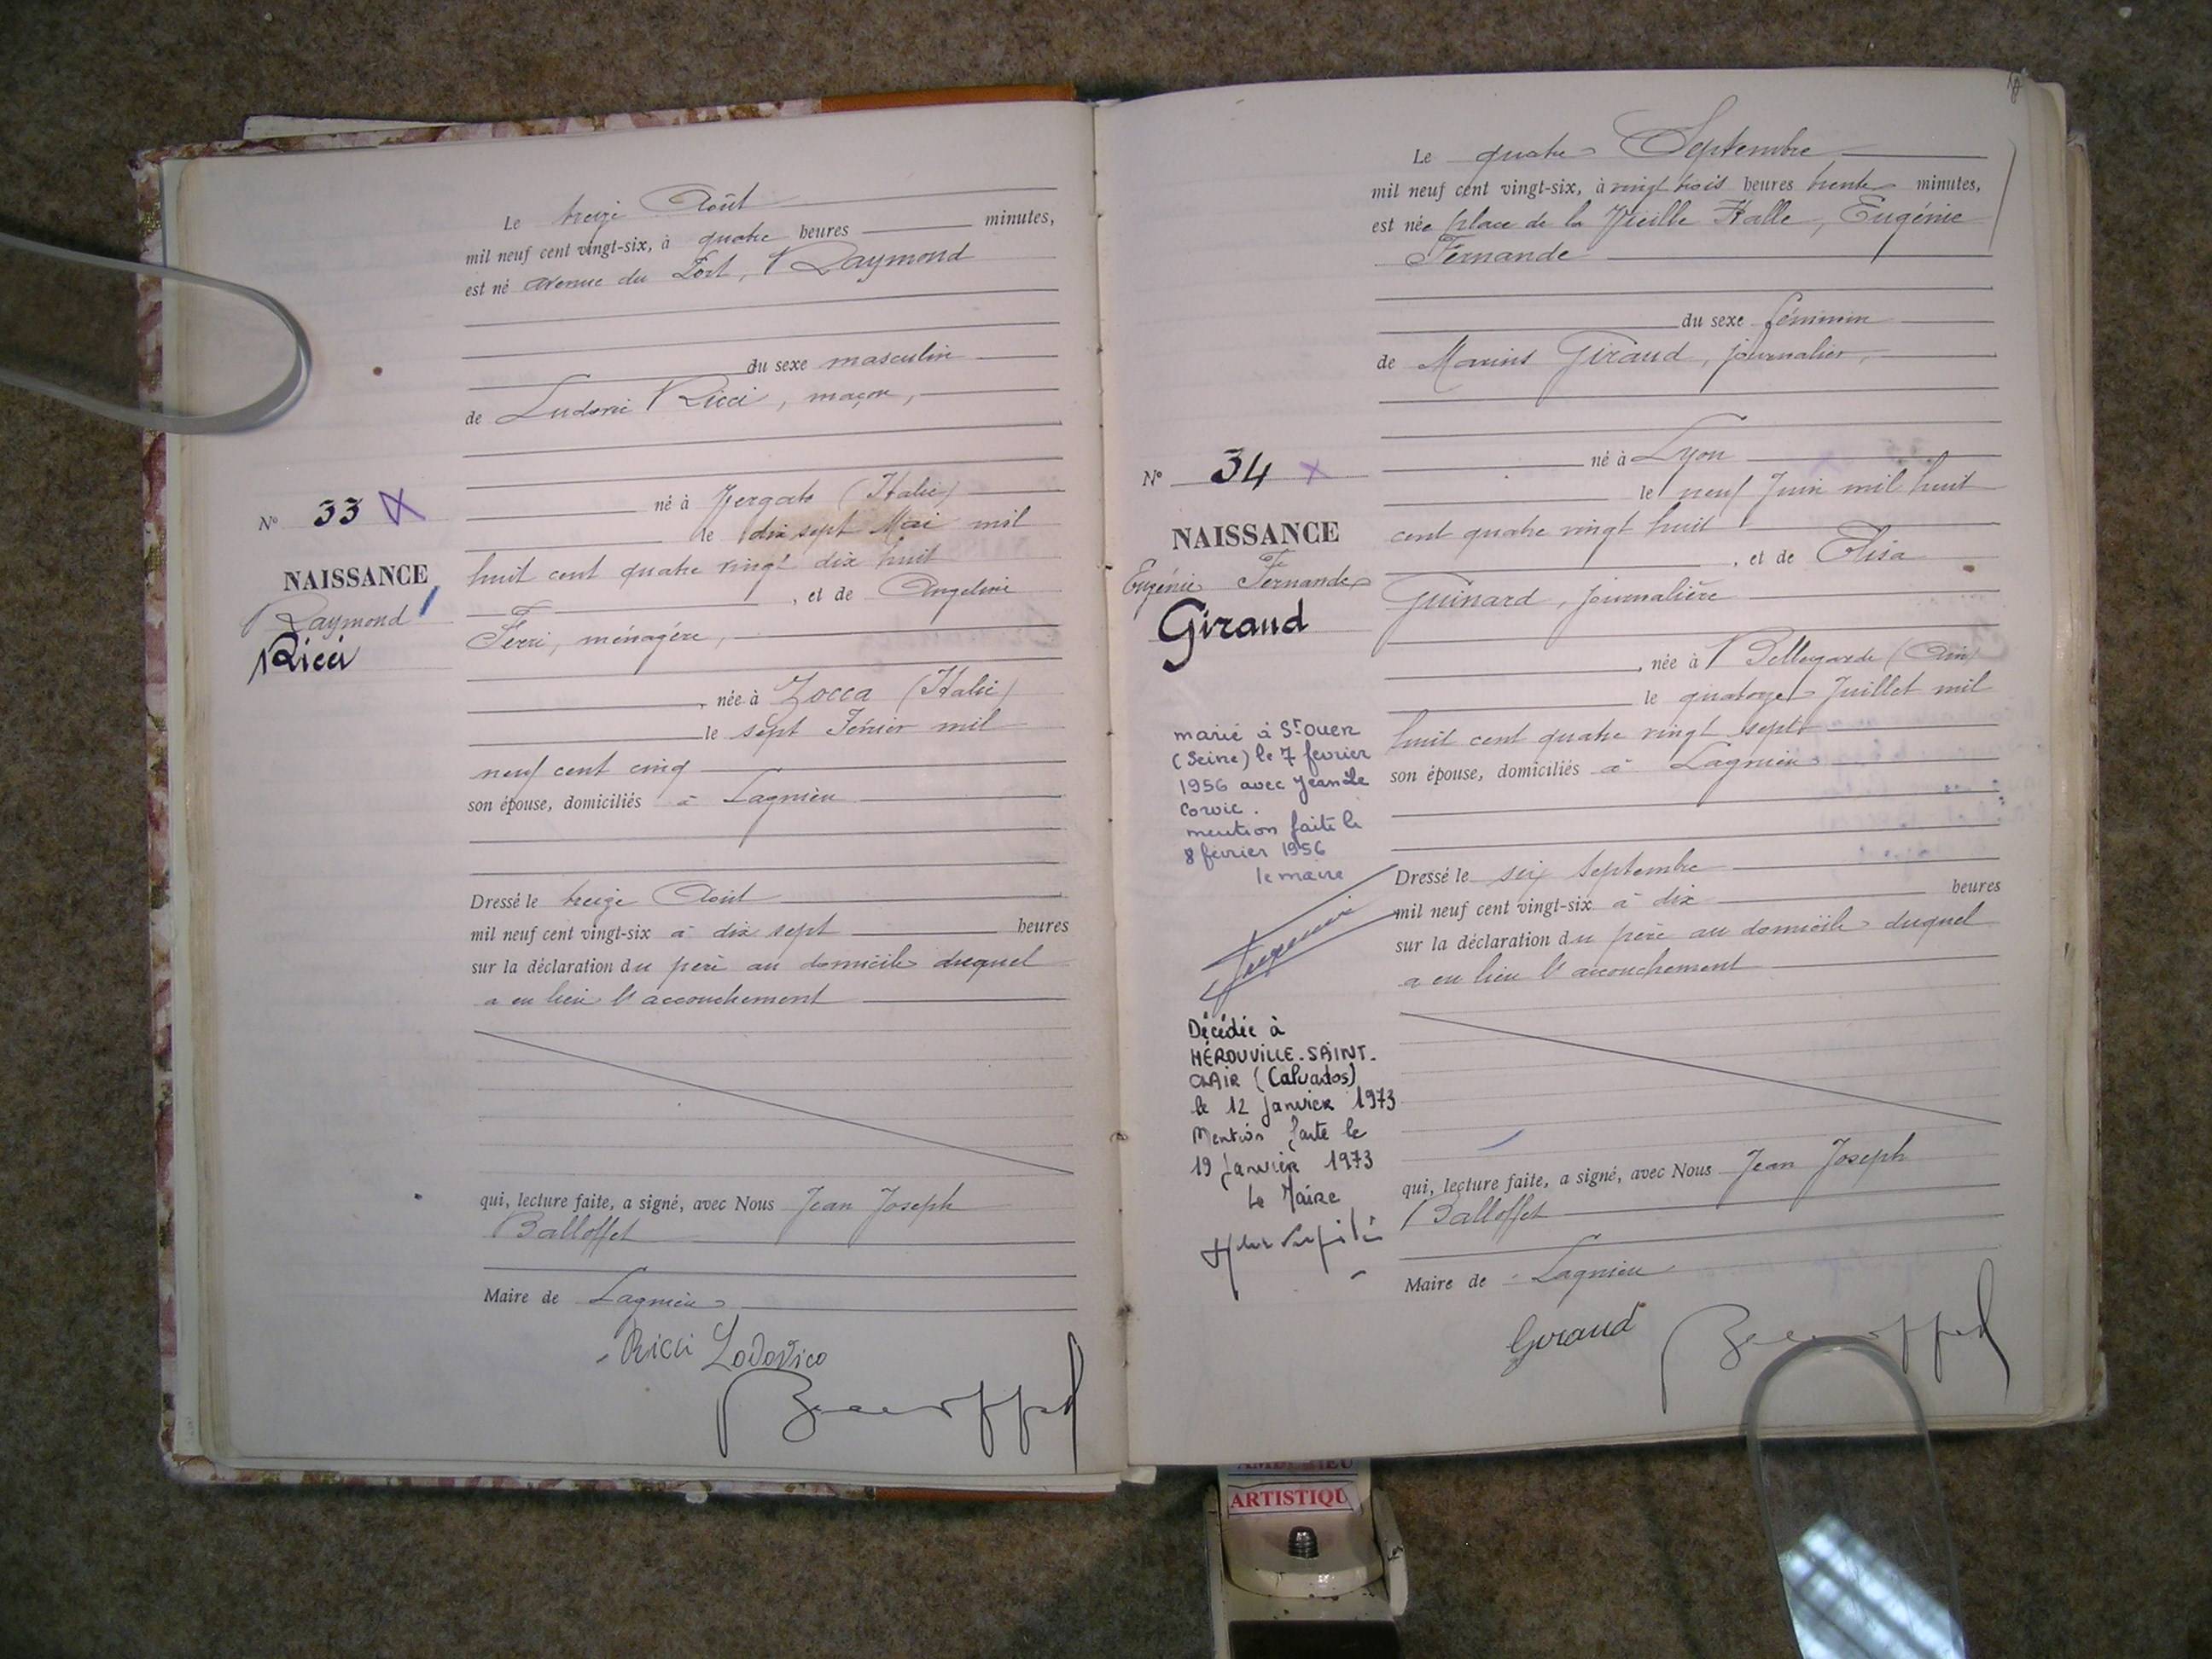 Le treize Août
mil neuf cent vingt-six, à quatre heures minutes,
est né avenue du Port, Raymond
du sexe masculin
de Ludovic Ricci, maçon,
né à Vergato (Italie)
le dix sept Mai mil
huit cent quatre vingt dix huit
, et de Angeline
Ferri, ménagère,
, née à Zocca (Italie)
le sept Février mil
neuf cent cinq
son épouse, domiciliés à Lagnieu
Dressé le treize Août
mil neuf cent vingt-six à dix sept heures
sur la déclaration du père au domicile duquel
a eu lieu l'accouchement
qui, lecture faite, a signé, avec Nous Jean Joseph
Balloffet
Maire de Lagnieu
Ricci Lodovico
Nº 33
NAISSANCE
Raymond
Ricci
Le quatre Septembre
mil neuf cent vingt-six, à vingt trois heures trente minutes,
est née place de la Vieille Halle, Eugénie
Fernande
du sexe féminin
de Marius Giraud, journalier,
né à Lyon
le neuf Juin mil huit
cent quatre vingt huit
, et de Elisa
Guinard, journalière
, née à Bellegarde (Ain)
le quatorze Juillet mil
huit cent quatre vingt sept
son épouse, domiciliés à Lagnieu
Dressé le six Septembre
mil neuf cent vingt-six à dix heures
sur la déclaration du père au domicile duquel
a eu lieu l'accouchement
qui, lecture faite, a signé, avec Nous Jean Joseph
Balloffet
Maire de Lagnieu
Giraud
Nº 34
NAISSANCE
Eugénie Fernande
Giraud
marié à St Ouen
(Seine) le 7 fevrier
1956 avec Jean Le
Corvic.
mention faite le
8 février 1956
le maire
Décédée à
HÉROUVILLE-SAINT-
CLAIR (Calvados)
le 12 Janvier 1973
Mention faite le
19 Janvier 1973
Le Maire
ARTISTIQU